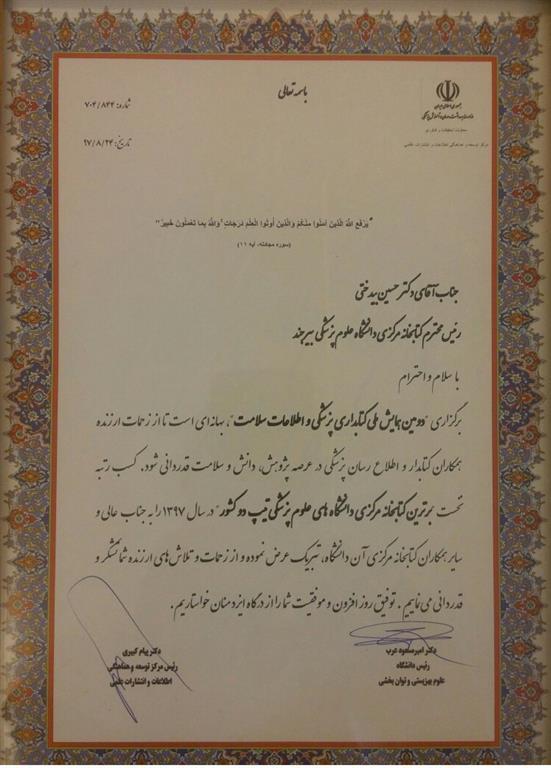 باسمه تعالی
جمهوری اسلامی ایران
وزارت بهداشت، درمان و آموزش پزشکی
معاونت تحقیقات و فناوری
مرکز توسعه و هماهنگی اطلاعات و انتشارات علمی
شماره: ۷۰۴/۸۴۴
تاریخ: ۹۷/۸/۲۴
"یَرْفَعِ اللَّهُ الَّذِینَ آمَنُوا مِنکُمْ وَالَّذِینَ أُوتُوا الْعِلْمَ دَرَجَاتٍ ۚ وَاللَّهُ بِمَا تَعْمَلُونَ خَبِیرٌ"
(سوره مجادله، آیه ۱۱)
جناب آقای دکتر حسین بیدختی
رئیس محترم کتابخانه مرکزی دانشگاه علوم پزشکی بیرجند
با سلام و احترام
برگزاری "دومین همایش ملی کتابداری پزشکی و اطلاعات سلامت"، بهانه‌ای است تا از زحمات ارزنده
همکاران کتابدار و اطلاع رسان پزشکی در عرصه پژوهش، دانش و سلامت قدردانی شود. کسب رتبه
نخست "برترین کتابخانه مرکزی دانشگاه های علوم پزشکی تیپ دو کشور" در سال ۱۳۹۷ را به جناب عالی و
سایر همکاران کتابخانه مرکزی آن دانشگاه، تبریک عرض نموده و از زحمات و تلاش‌های ارزنده شما تشکر و
قدردانی می نماییم. توفیق روز افزون و موفقیت شما را از درگاه ایزد منان خواستاریم.
دکتر امیرمسعود عرب
رئیس دانشگاه
علوم بهزیستی و توان بخشی
دکتر پیام کبیری
رئیس مرکز توسعه و هماهنگی
اطلاعات و انتشارات علمی